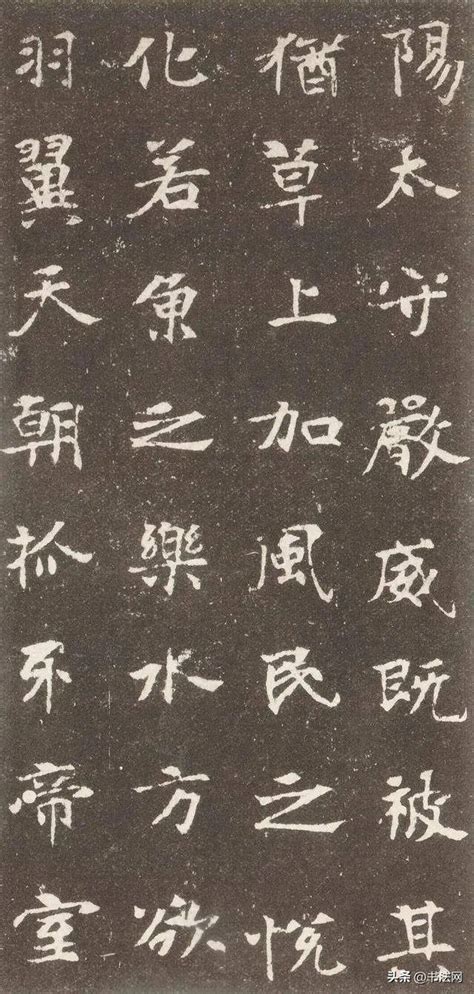 陽太守嚴威既被其
猶草上加風民之悅
化若魚之樂水方欲
羽翼天朝抓牙帝室
头条@书法网